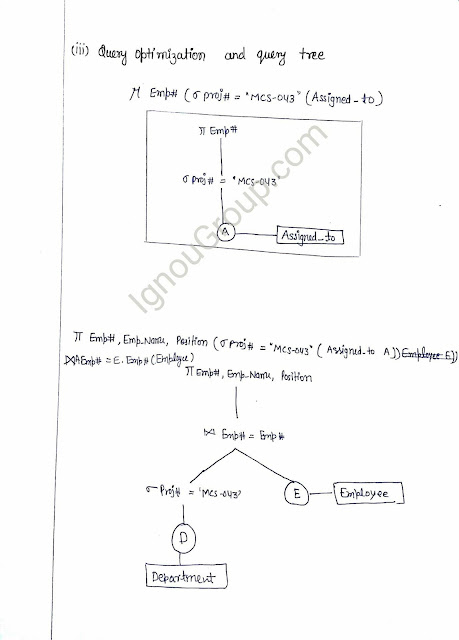 (iii) Query optimization and query tree
Π Emp# (σ proj# = "MCS-043" (Assigned_to)
Π Emp#
σ Proj# = "MCS-043"
A
Assigned_to
IgnouGroup.com
Π Emp#, Emp_Name, Position (σ Proj# = "MCS-043" (Assigned_to A)) Employee E))
⋈AEmp# = E. Emp# (Employee)
Π Emp#, Emp_Name, Position
⋈ Emp# = Emp#
σ Proj# = 'MCS-043'
E
Employee
D
Department